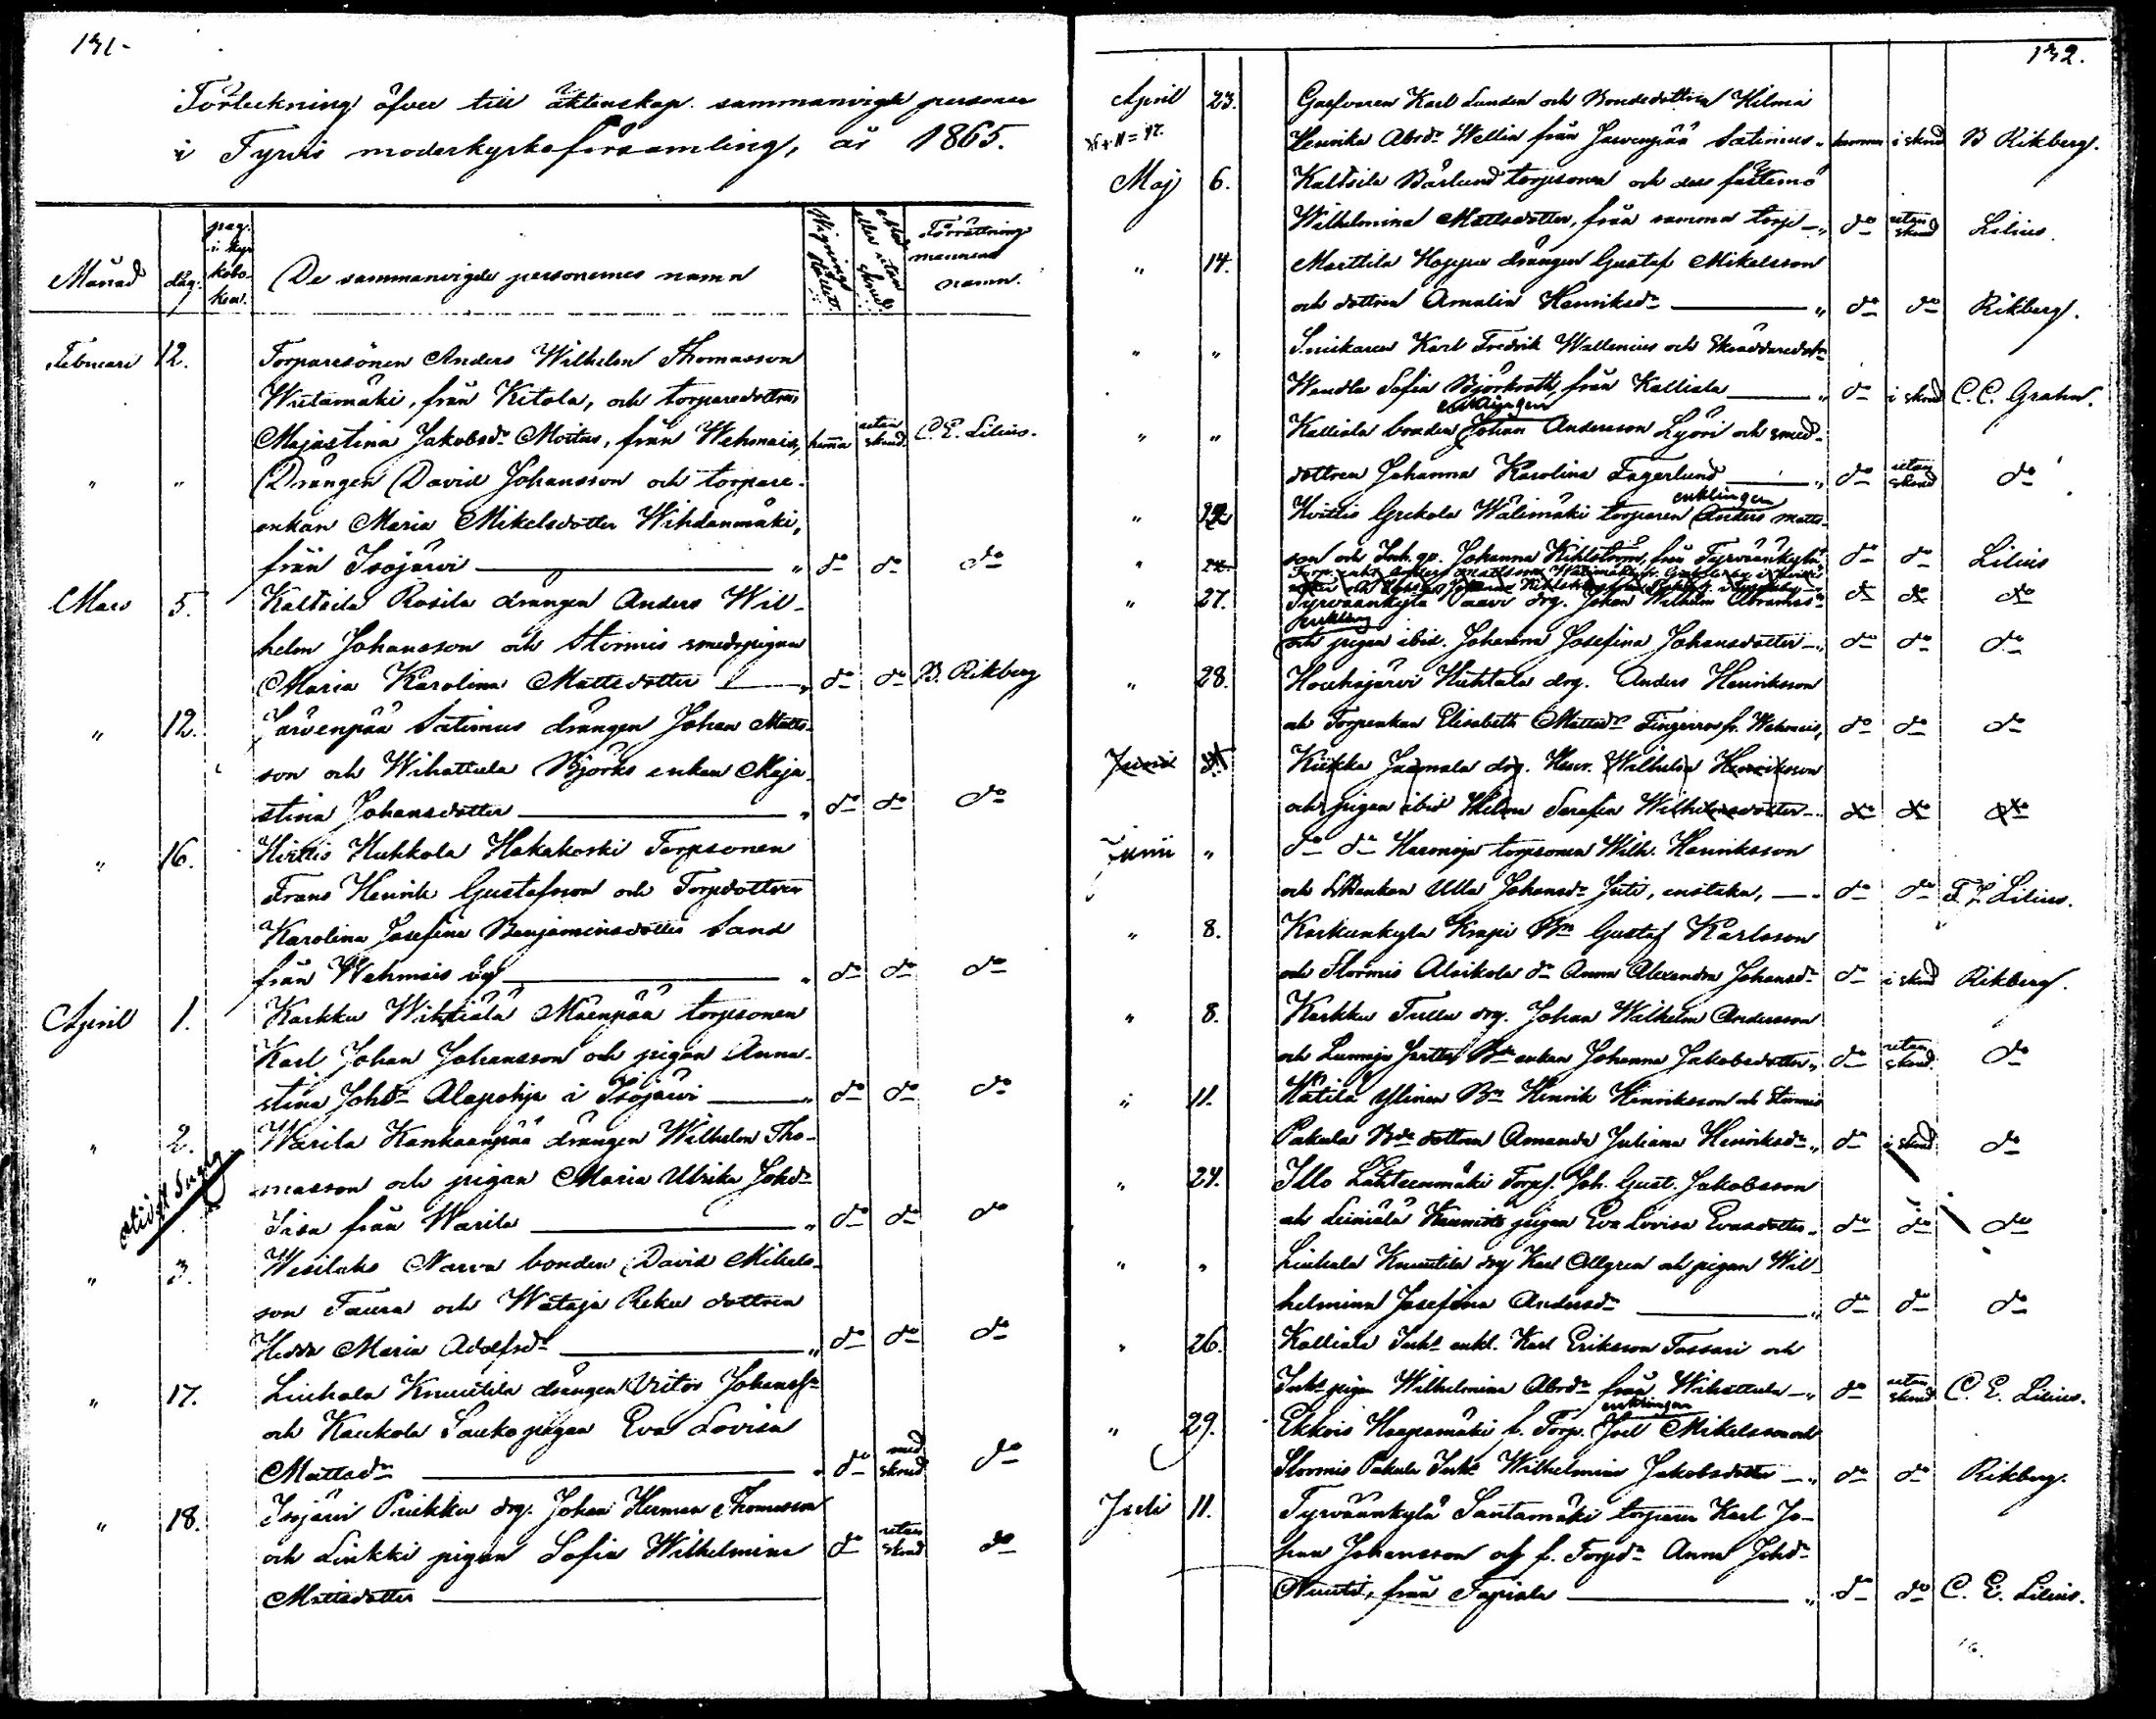 131.
Förteckning öfver till äktenskap sammanvigde personer
i Tyrvis moderkyrkoförsamling, år 1865.
Månad dag. pag. i kyrkobo- ken. De sammanvigde personernes namn Vigning stället. Med eller utan skrud. Förrättnings mannens namn.
Februari 12. Torparesonen Anders Wilhelm Thomasson
, från Kitola, och torparedottren
Majastina Jakobsdr , från Wehmais, hemma utan skrud C. E. Lilius.
" " Drängen David Johansson och torpare-
enkan Maria Mikelsdotter Wihdanmäki,
från Isojärvi " do do do
Mars 5. Kaltsila Rosila drängen Anders Wil-
helm Johansson och Stormis smedspigan
Maria Karolina Mattsdotter " do do B. Rikberg
" 12. Järvenpää Satimus drängen Johan Matts-
son och Wihattula Björks enkan Maja-
stina Johansdotter " do do do
" 16. Huhkola Hakakoski Torpsonen
Frans Henrik Gustafsson och Torpdottren
Karolina Josefina Benjaminsdotter Sand
från Wehmais by " do do do
April 1. Karkku Mäenpää torpsonen
Karl Johan Johansson och pigan Anna-
stina Johsdr Alapohja i Isojärvi " do do do
" 2. Warila Kankaanpää drängen Wilhelm Tho-
masson och pigan Maria Ulrika Johsdr
från Warila " do do do
" 3. Wesilaks Narva bonden David Mikels-
son Taura och Wataja Reku dottren
Hedda Maria Adolfsdr " do do do
" 17. Liuhala Knuutila drängen Viktor Johanss
och Kaukola Sauko pigan Eva Lovisa
Mattsdr " do med skrud do
" 18. Isojärvi Priekku drg. Johan Herman Thomasson
och Liukki pigan Sofia Wilhelmina do utan skrud do
Mattsdotter
132.
April 23. Garfvaren Karl Lunden och Bondedottren Hilma
Henrika Abrsdr Wellin från Jarvenpää Satimus " hemma i skrud B Rikberg.
Maj 6. Kaltsila Bärlund torpsonen och dess fästemö
Wilhelmina Mattsdotter, från samma torp " do utan skrud Lilius.
" 14. Marttila Hoppu drängen Gustaf Mikelsson
och dottren Amalia Henriksdr " do do Rikberg.
" " Snickaren Karl Fredrik Wallenius och Skräddaredotr
Wendla Sofia Björkroth, från Kalliala " do i skrud C. E. Grahn.
enklingen
" " Kalliala bonden Johan Andersson Lyöri och smed-
dottren Johanna Karolina Fagerlund " do utan skrud do
enklingen
" Grekola Wälimäki torparen Anders Matts-
" son och Inh. gp. Johanna Kihlström, från Tyrväänkylä do do Lilius
" 27. Tyrväänkylä drg. Johan Wilhelm Abrahms do do do
och pigan ibid. Johanna Josefina Johansdotter " do do do
" 28. Houhajärvi Huhtala drg. Anders Henriksson
och Torpenkan Elisabeth Mattsdr fr. Wehmais, do do do
Juni Kiikka Jaamala drg. Wilhelm Henriksson
och pigan ibid Serafia Wilhelmsdotter do do do
Junii " do do Haronoja torpsonen Wilh. Henriksson
och enkan Ulla Johansdr Juti, do do F. L. Lilius.
" 8. Karkunkylä Krapi Bn Gustaf Karlsson
och Stormis Alaikola dr Anna Alexandra Johansdr do i skrud Rikberg.
" 8. Karkku Tulla drg. Johan Wilhelm Andersson
och Lummaja Jertta Bde enkan Johanna Jakobsdotter " do utan skrud do
" 11. Hätilä Ylinen Bn Henrik Henriksson och Stormis
Pakula Bde dottren Amanda Juliana Henriksdr " do i skrud do
" 24. Illo Lähteenmäki Torps. Joh. Gust. Jakobsson
och Leiniälä pigan Eva Lovisa Evasdotter do do do
" " Liuhala Knuutila drg Karl Ollgren och pigan Wil-
helmina Josefina Andersdr " do do do
" 26. Kalliala Inhs enkl. Karl Eriksson Tassari och
Inhs pigan Wilhelmina Abrsdr från Wihattula " do utan skrud C. E. Lilius.
enklingen
" 29. Ekkois Haapamäki f. Torp. Joel Mikelsson och
Stormis Pakula Inhs Wilhelmina Jakobsdotter " do do Rikberg.
Juli 11. Tyrväänkylä Santamäki torparen Karl Jo-
han Johansson och f. Torpdr Anna Johsdr
Nuuti, från Tapiala " do do C. E. Lilius.